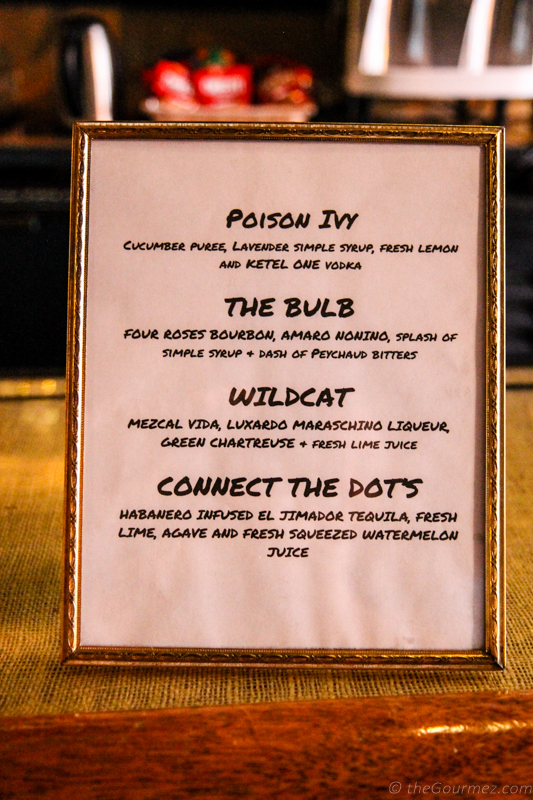 Poison Ivy
Cucumber puree, Lavender simple syrup, fresh lemon
and KETEL ONE vodka
THE BULB
FOUR ROSES BOURBON, AMARO NONINO, splash of
simple syrup & dash of Peychaud bitters
WILDCAT
MEZCAL VIDA, LUXARDO MARASCHINO LIQUEUR,
GREEN CHARTREUSE & fresh lime juice
CONNECT THE DOT'S
HABANERO INFUSED EL JIMADOR TEQUILA, FRESH
LIME, AGAVE AND FRESH SQUEEZED WATERMELON
JUICE
© theGourmez.com